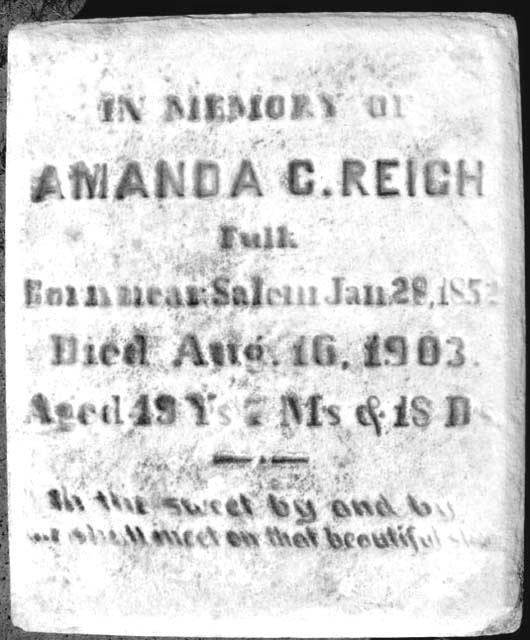 IN MEMORY OF
AMANDA C. REICH
Fulk
Born near Salem Jan. 28, 1852
Died Aug. 16, 1903.
Aged 49 Ys 7 Ms & 18 Ds
In the sweet by and by
we shall meet on that beautiful